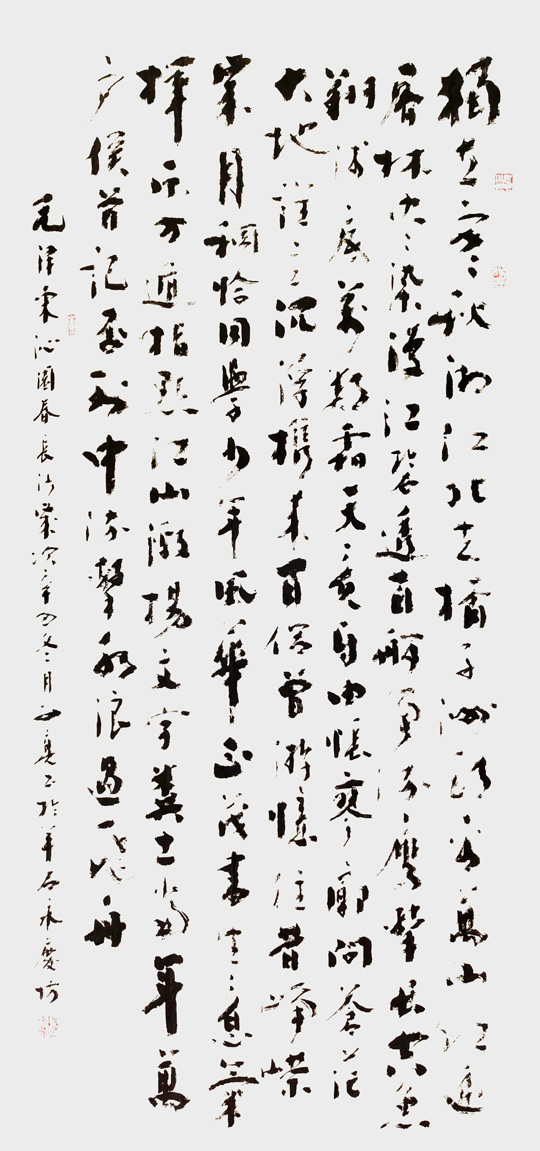 獨立寒秋湘江北去橘子洲頭看萬山紅遍
層林尽染漫江碧透百舸爭流鷹擊長空魚
翔淺底萬類霜天競自由悵寥廓問蒼茫
大地誰主沉浮攜來百侶曾游憶往昔崢嶸
歲月稠恰同學少年風華正茂書生意氣
揮斥方遒指點江山激揚文字糞土當年萬
户侯曾記否到中流擊水浪遏飛舟
毛澤東沁園春長沙歲次辛丑冬月於羊石永慶坊